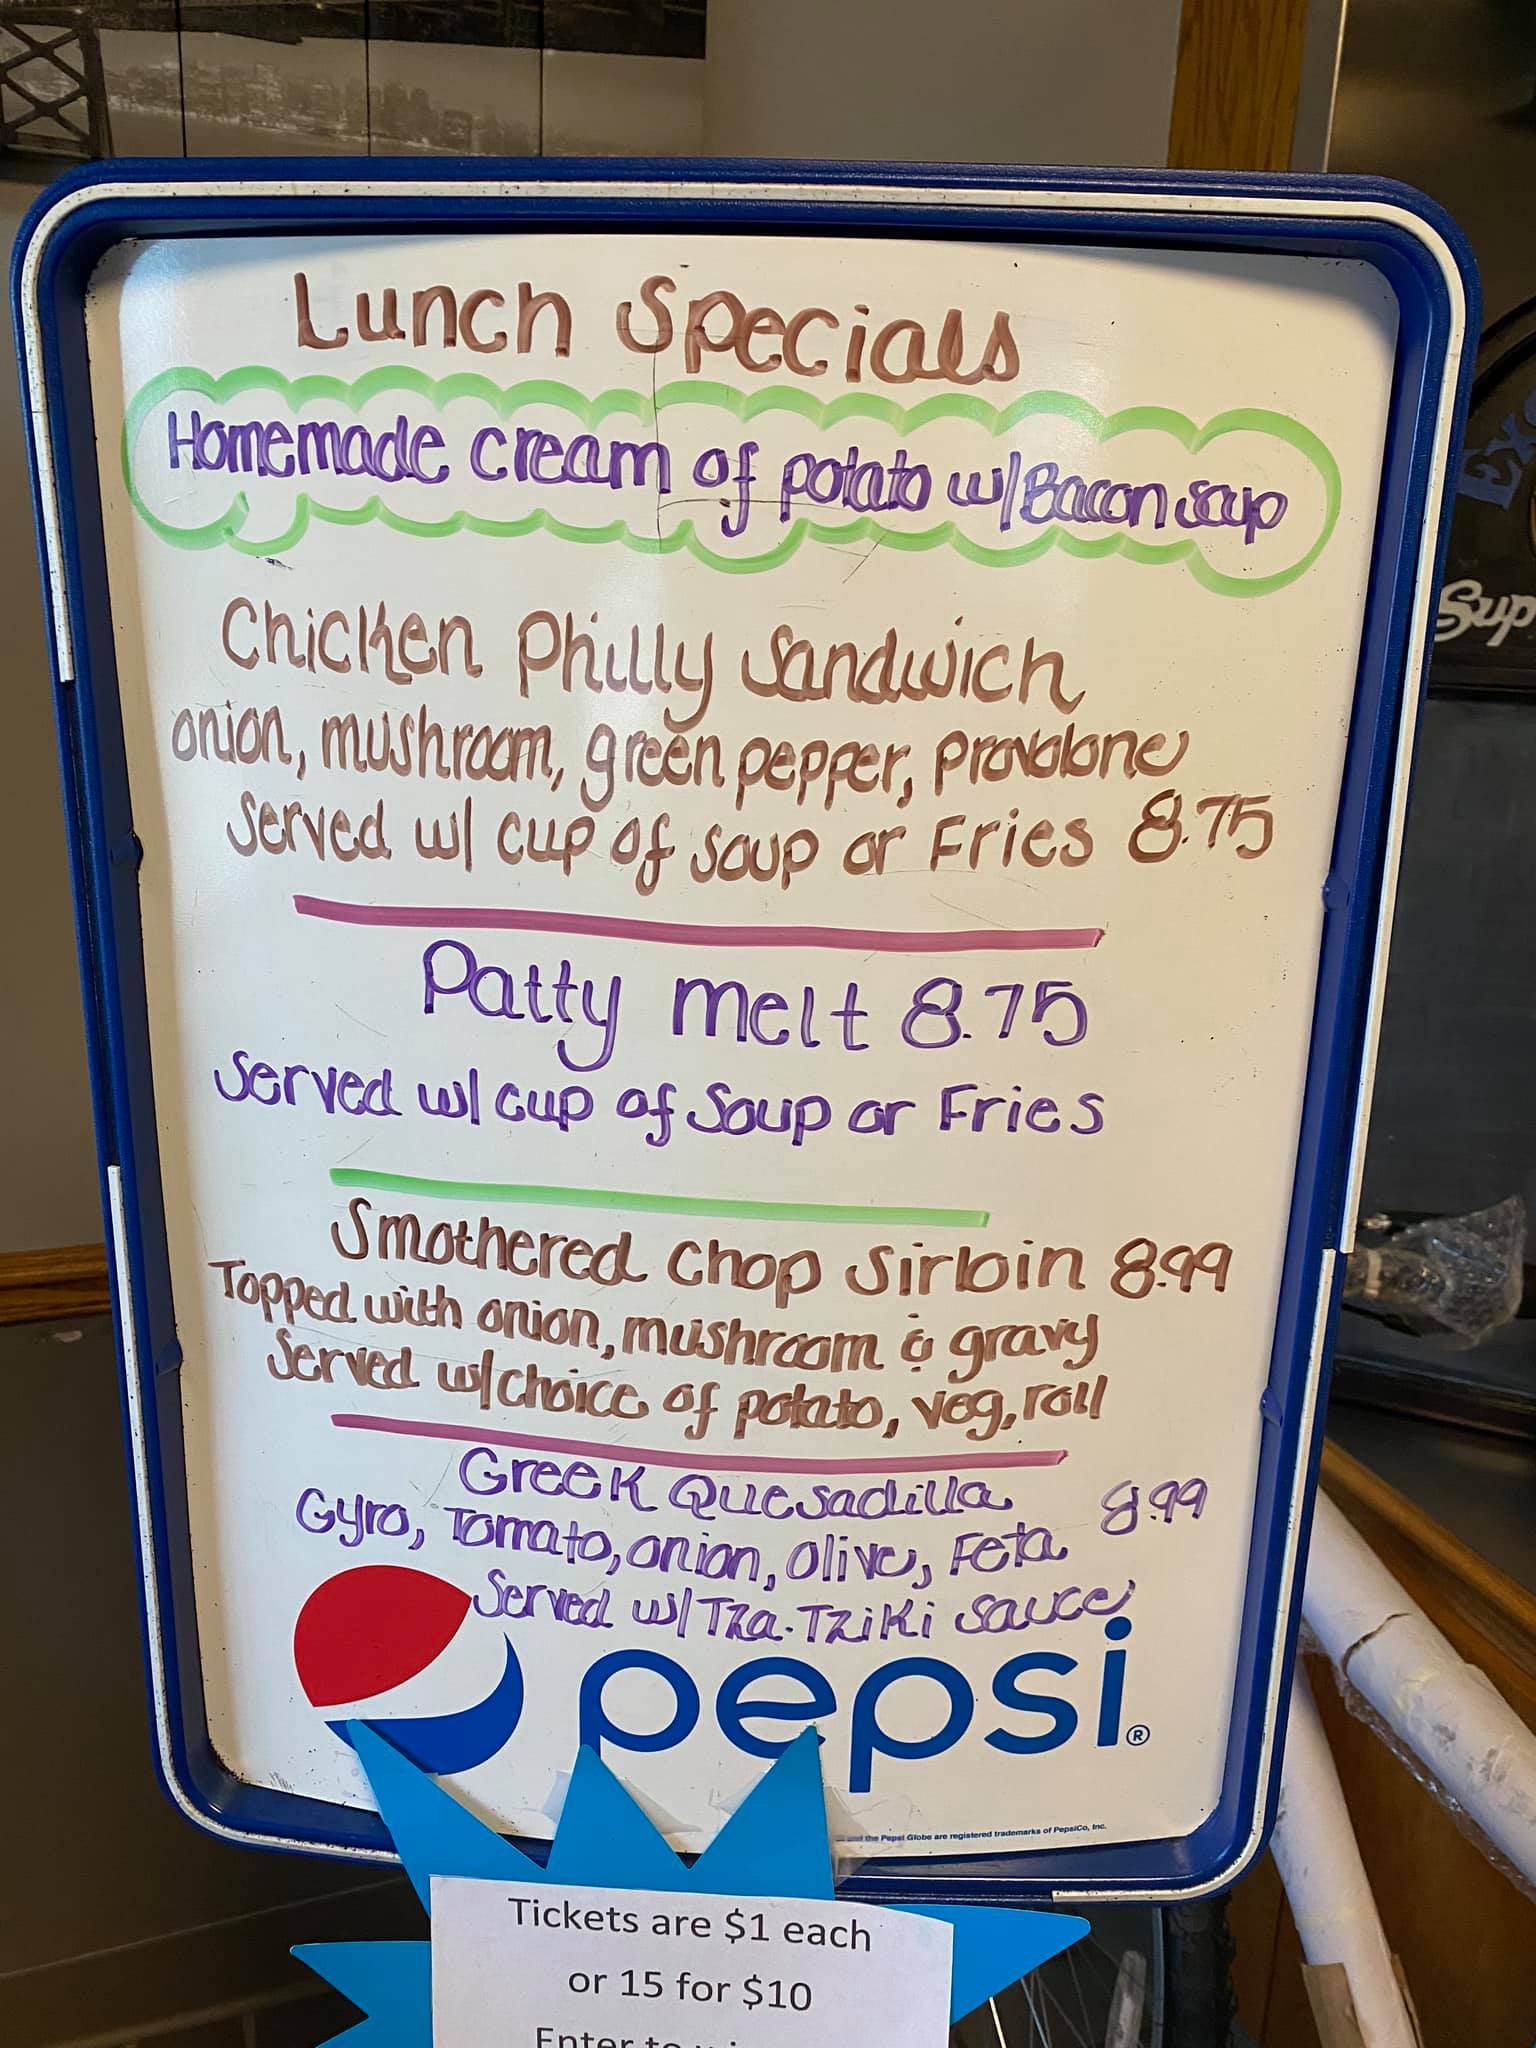 Lunch Specials
Homemade cream of potato w/Bacon soup
Chicken Philly Sandwich
onion, mushroom, green pepper, provolone
Served w/ cup of soup or Fries 8.75
Patty melt 8.75
Served w/ cup of Soup or Fries
Smothered Chop Sirloin 8.99
Topped with onion, mushroom & gravy
Served w/choice of potato, veg, roll
Greek Quesadilla 8.99
Gyro, Tomato, onion, olive, Feta
Served w/ Tza-Tziki sauce
pepsi®
and the Pepsi Globe are registered trademarks of PepsiCo, Inc.
Tickets are $1 each
or 15 for $10
Enter to